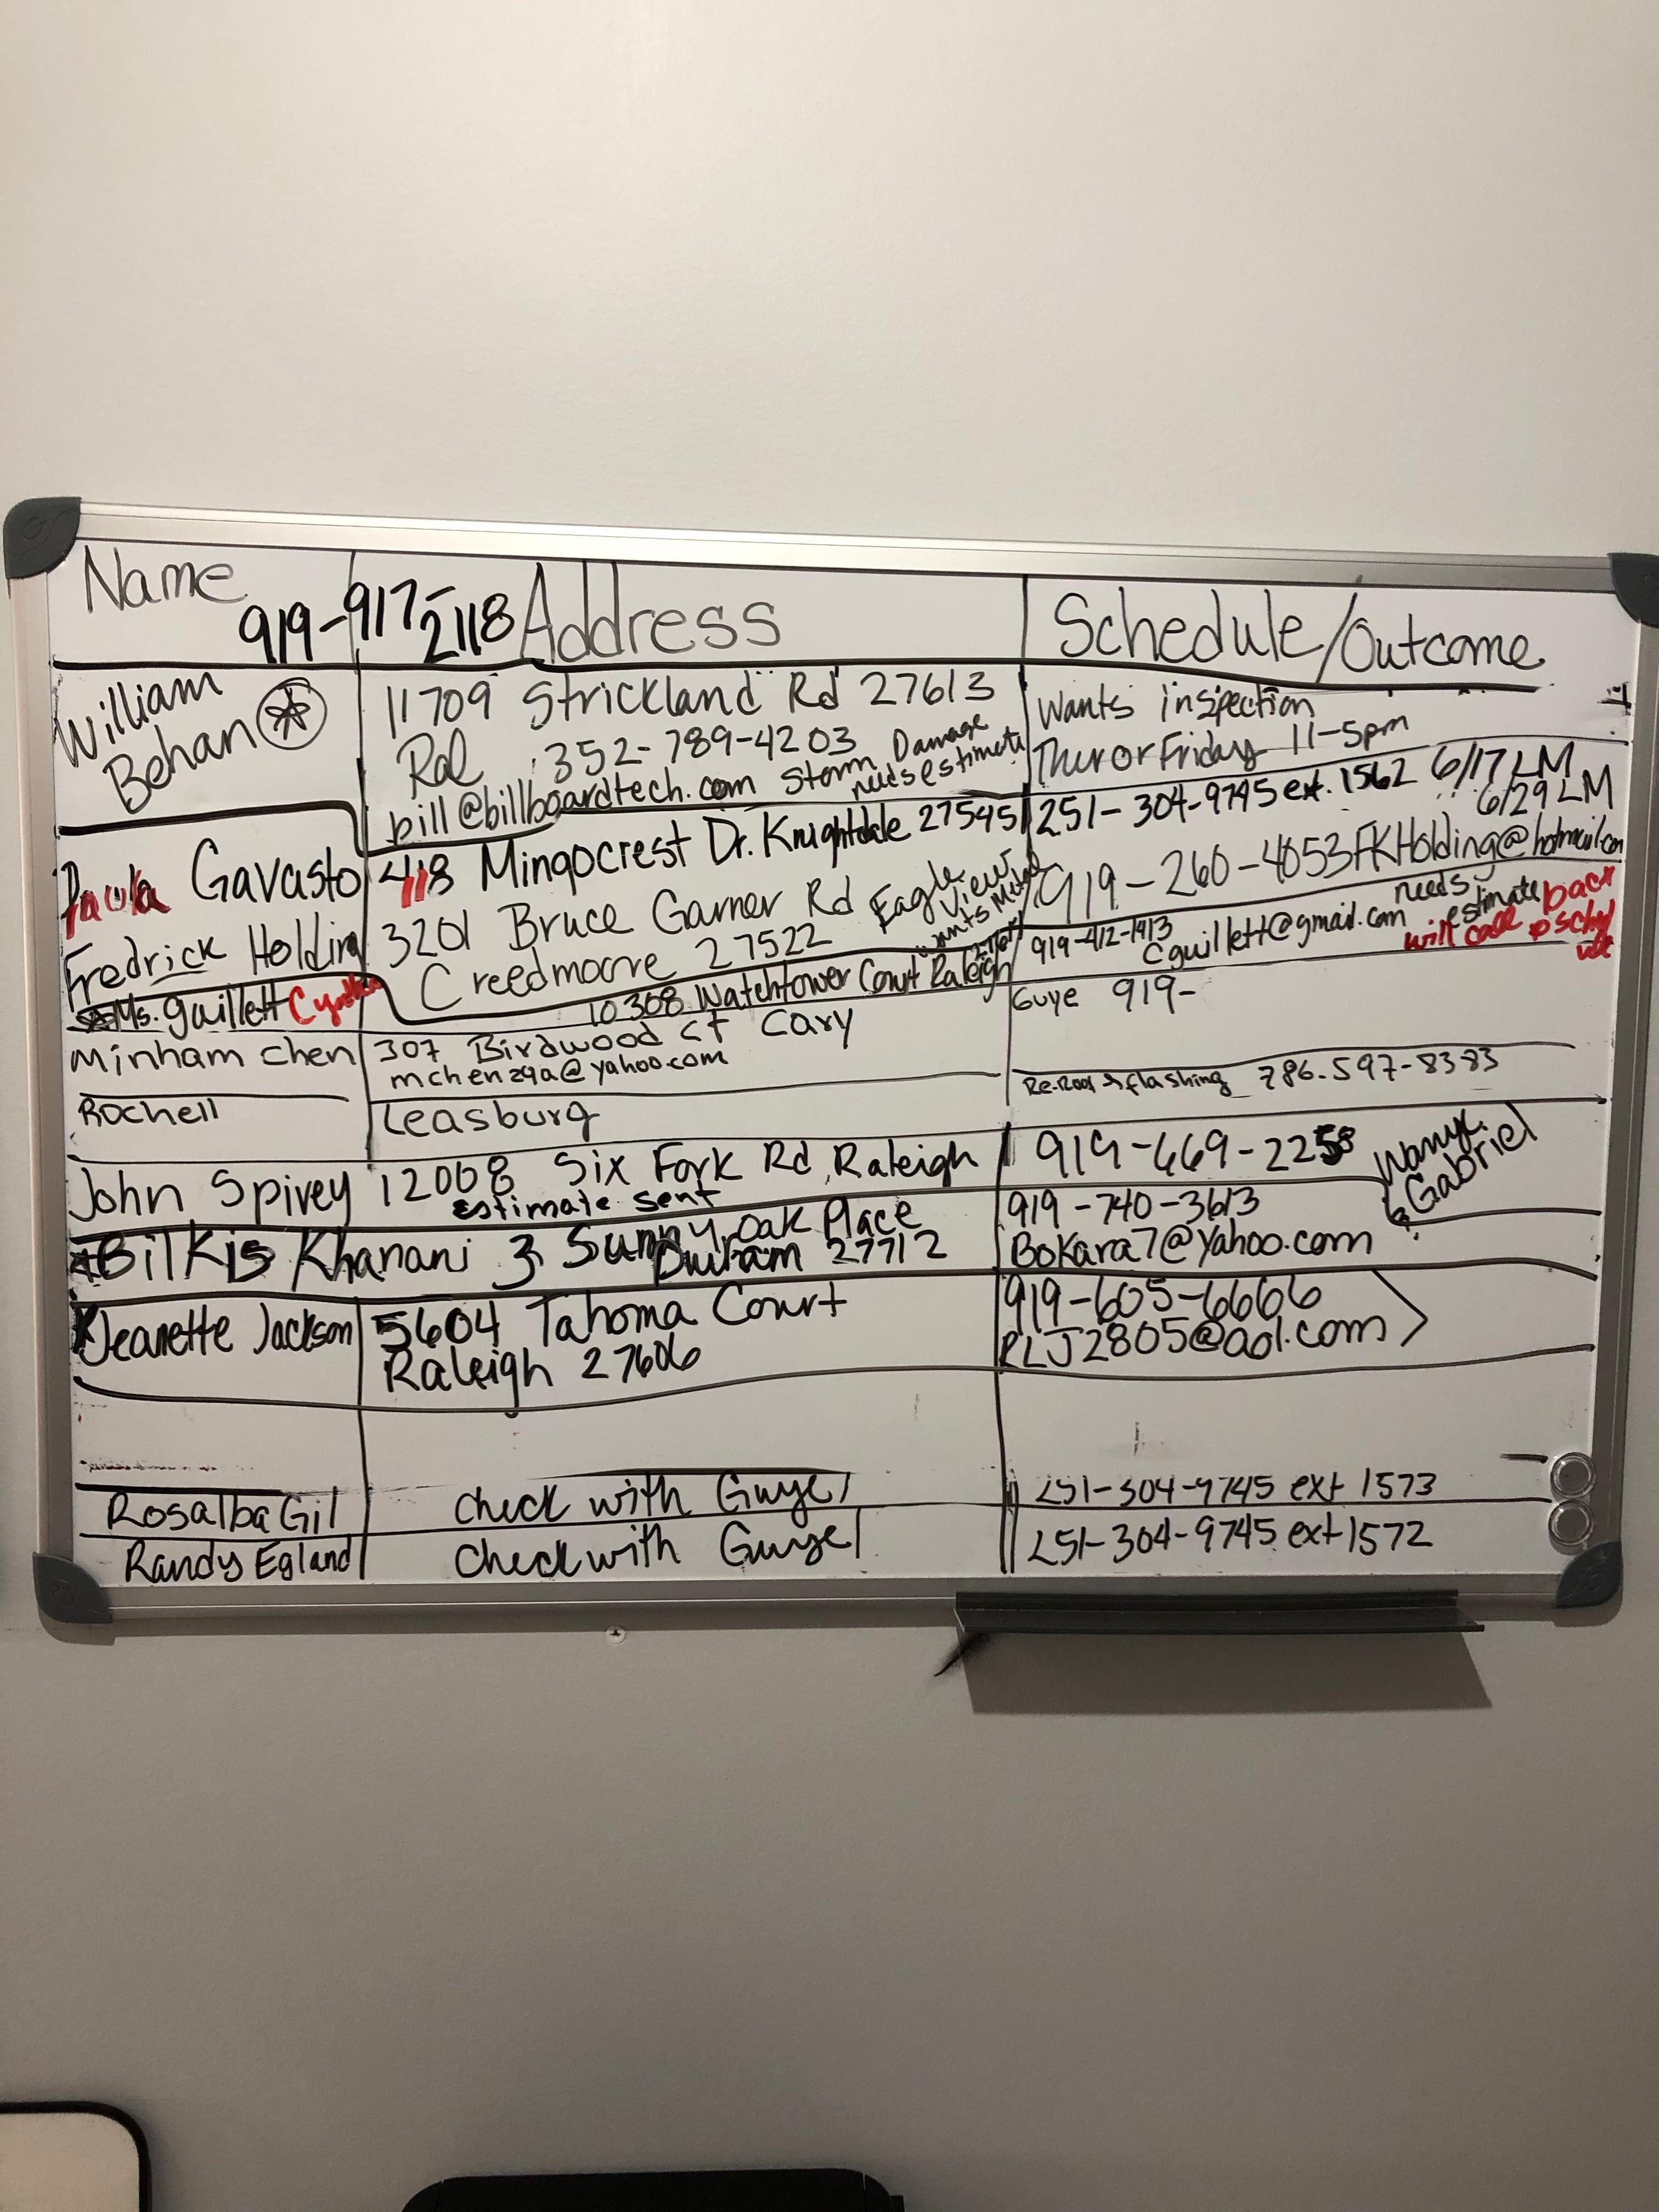 Name
919-917-2118 Address
Schedule/Outcome
William
Behan
11709 Strickland Rd 27613
Ral 352-789-4203
bill@billboardtech.com Storm Damage
needs estimate
Wants inspection
Thur or Friday 11-5pm
Paula Gavasto
418 Mingocrest Dr. Knightdale 27545
251-304-9745 ext. 1562 6/17 LM
6/29 LM
Fredrick Holding
3201 Bruce Garner Rd
Creedmoore 27522
Eagle
View
wants Metal
919-260-4053 FKHolding@hotmail.com
Ms. guillett Cynthia
10308 Watchtower Court Raleigh
919-412-1413
Cguillett@gmail.com
needs
estimate
will call back
Minham Chen
307 Birdwood Ct Cary
mchenzqa@yahoo.com
Guye 919-
Rochell
Leasburg
Re-Roof & flashing 786.597-8383
John Spivey
12008 Six Fork Rd, Raleigh
estimate sent
919-669-2258
Gabriel
Bilkis Khanani
3 Sunny Oak Place
Durham 27712
919-740-3613
Bokara7@yahoo.com
Jeanette Jackson
5604 Tahoma Court
Raleigh 27606
919-605-6666
RLJ2805@aol.com
Rosalba Gil
check with Guye
251-304-9745 ext 1573
Randy Egland
check with Guye
251-304-9745 ext 1572